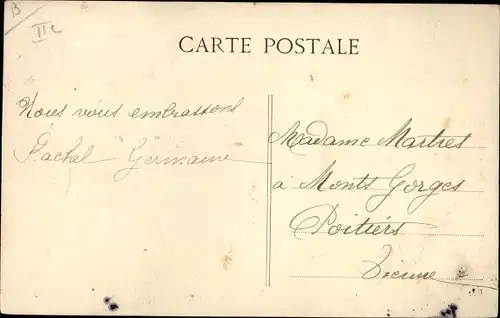 B
II c
CARTE POSTALE
Nous vous embrassons
Rachel Germaine
Madame Martres
à Monts Gorges
Poitiers
Vienne